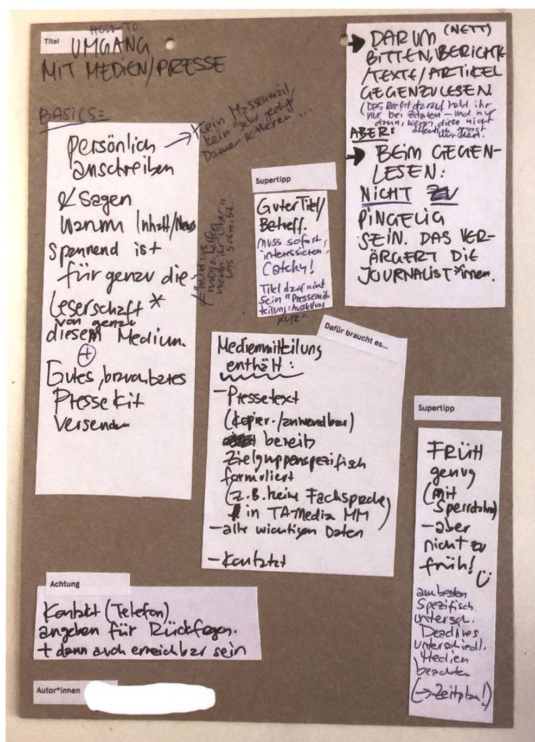 Titel
HOW-TO
UMGANG
MIT MEDIEN/PRESSE
BASICS:
persönlich
anschreiben
& sagen
warum Inhalt/News
spannend ist
für genau die
Leserschaft *
von genau
diesem Medium.
+
Gutes, brauchbares
Presse Kit
versenden
Kein Massenmail,
kein
Supertipp
Guter Titel/
Betreff.
muss sofort
Catchy!
Titel darf nicht
sein "Pressemit-
teilung: Ausstellung
DARUM (NETT)
BITTEN, BERICHTE
/TEXTE/ARTIKEL
GEGENZULESEN
ABER:
BEIM GEGEN-
LESEN:
NICHT ZU
PINGELIG
SEIN. DAS VER-
ÄRGERT DIE
JOURNALIST*innen.
Dafür braucht es...
Medienmitteilung
enthält:
- Pressetext
(kopier-/anwendbar)
bereits
Zielgruppenspezifisch
formuliert
(z.B. keine Fachsprache
in TAMedia MM
- alle wichtigen Daten
- Kontakt
Supertipp
FRÜH
genug
(mit
- aber
nicht zu
früh!
am besten
Spezifisch
untersch.
Deadlines
unterschiedl.
Medien
beachten
(→ Zeitplan!)
Achtung
Kontakt (Telefon)
angeben für Rückfragen.
+ dann auch erreichbar sein
Autor*innen